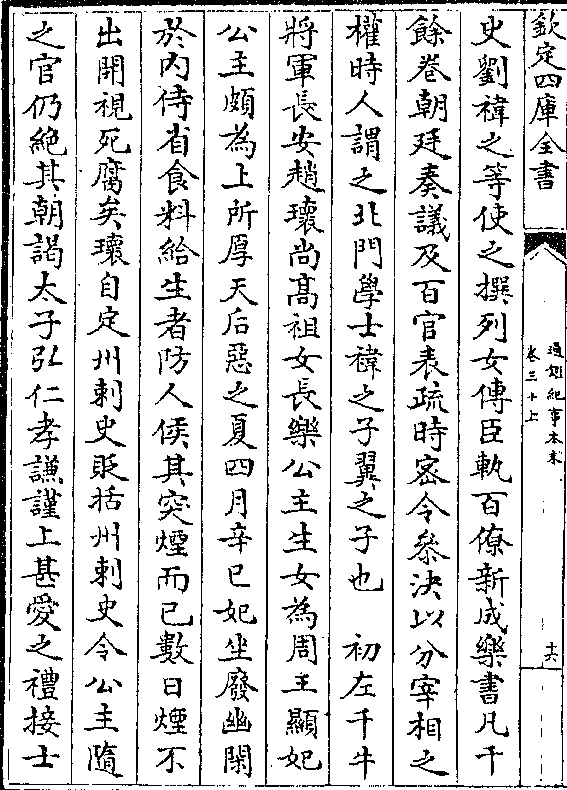 欽定四庫全書
通鑑紀事本末
卷三十上
十六
史劉褘之等使之撰列女傳臣軌百僚新成樂書凡千
餘卷朝廷奏議及百官表疏時密令叅決以分宰相之
權時人謂之北門學士褘之子翼之子也　初左千牛
將軍長安趙瓌尚髙祖女長樂公主生女為周王顯妃
公主頗為上所厚天后惡之夏四月辛巳妃坐廢幽閑
於内侍省食料給生者防人候其突煙而已數日煙不
出開視死腐矣瓌自定州刺史貶括州刺史令公主隨
之官仍絶其朝謁太子弘仁孝謙謹上甚愛之禮接士